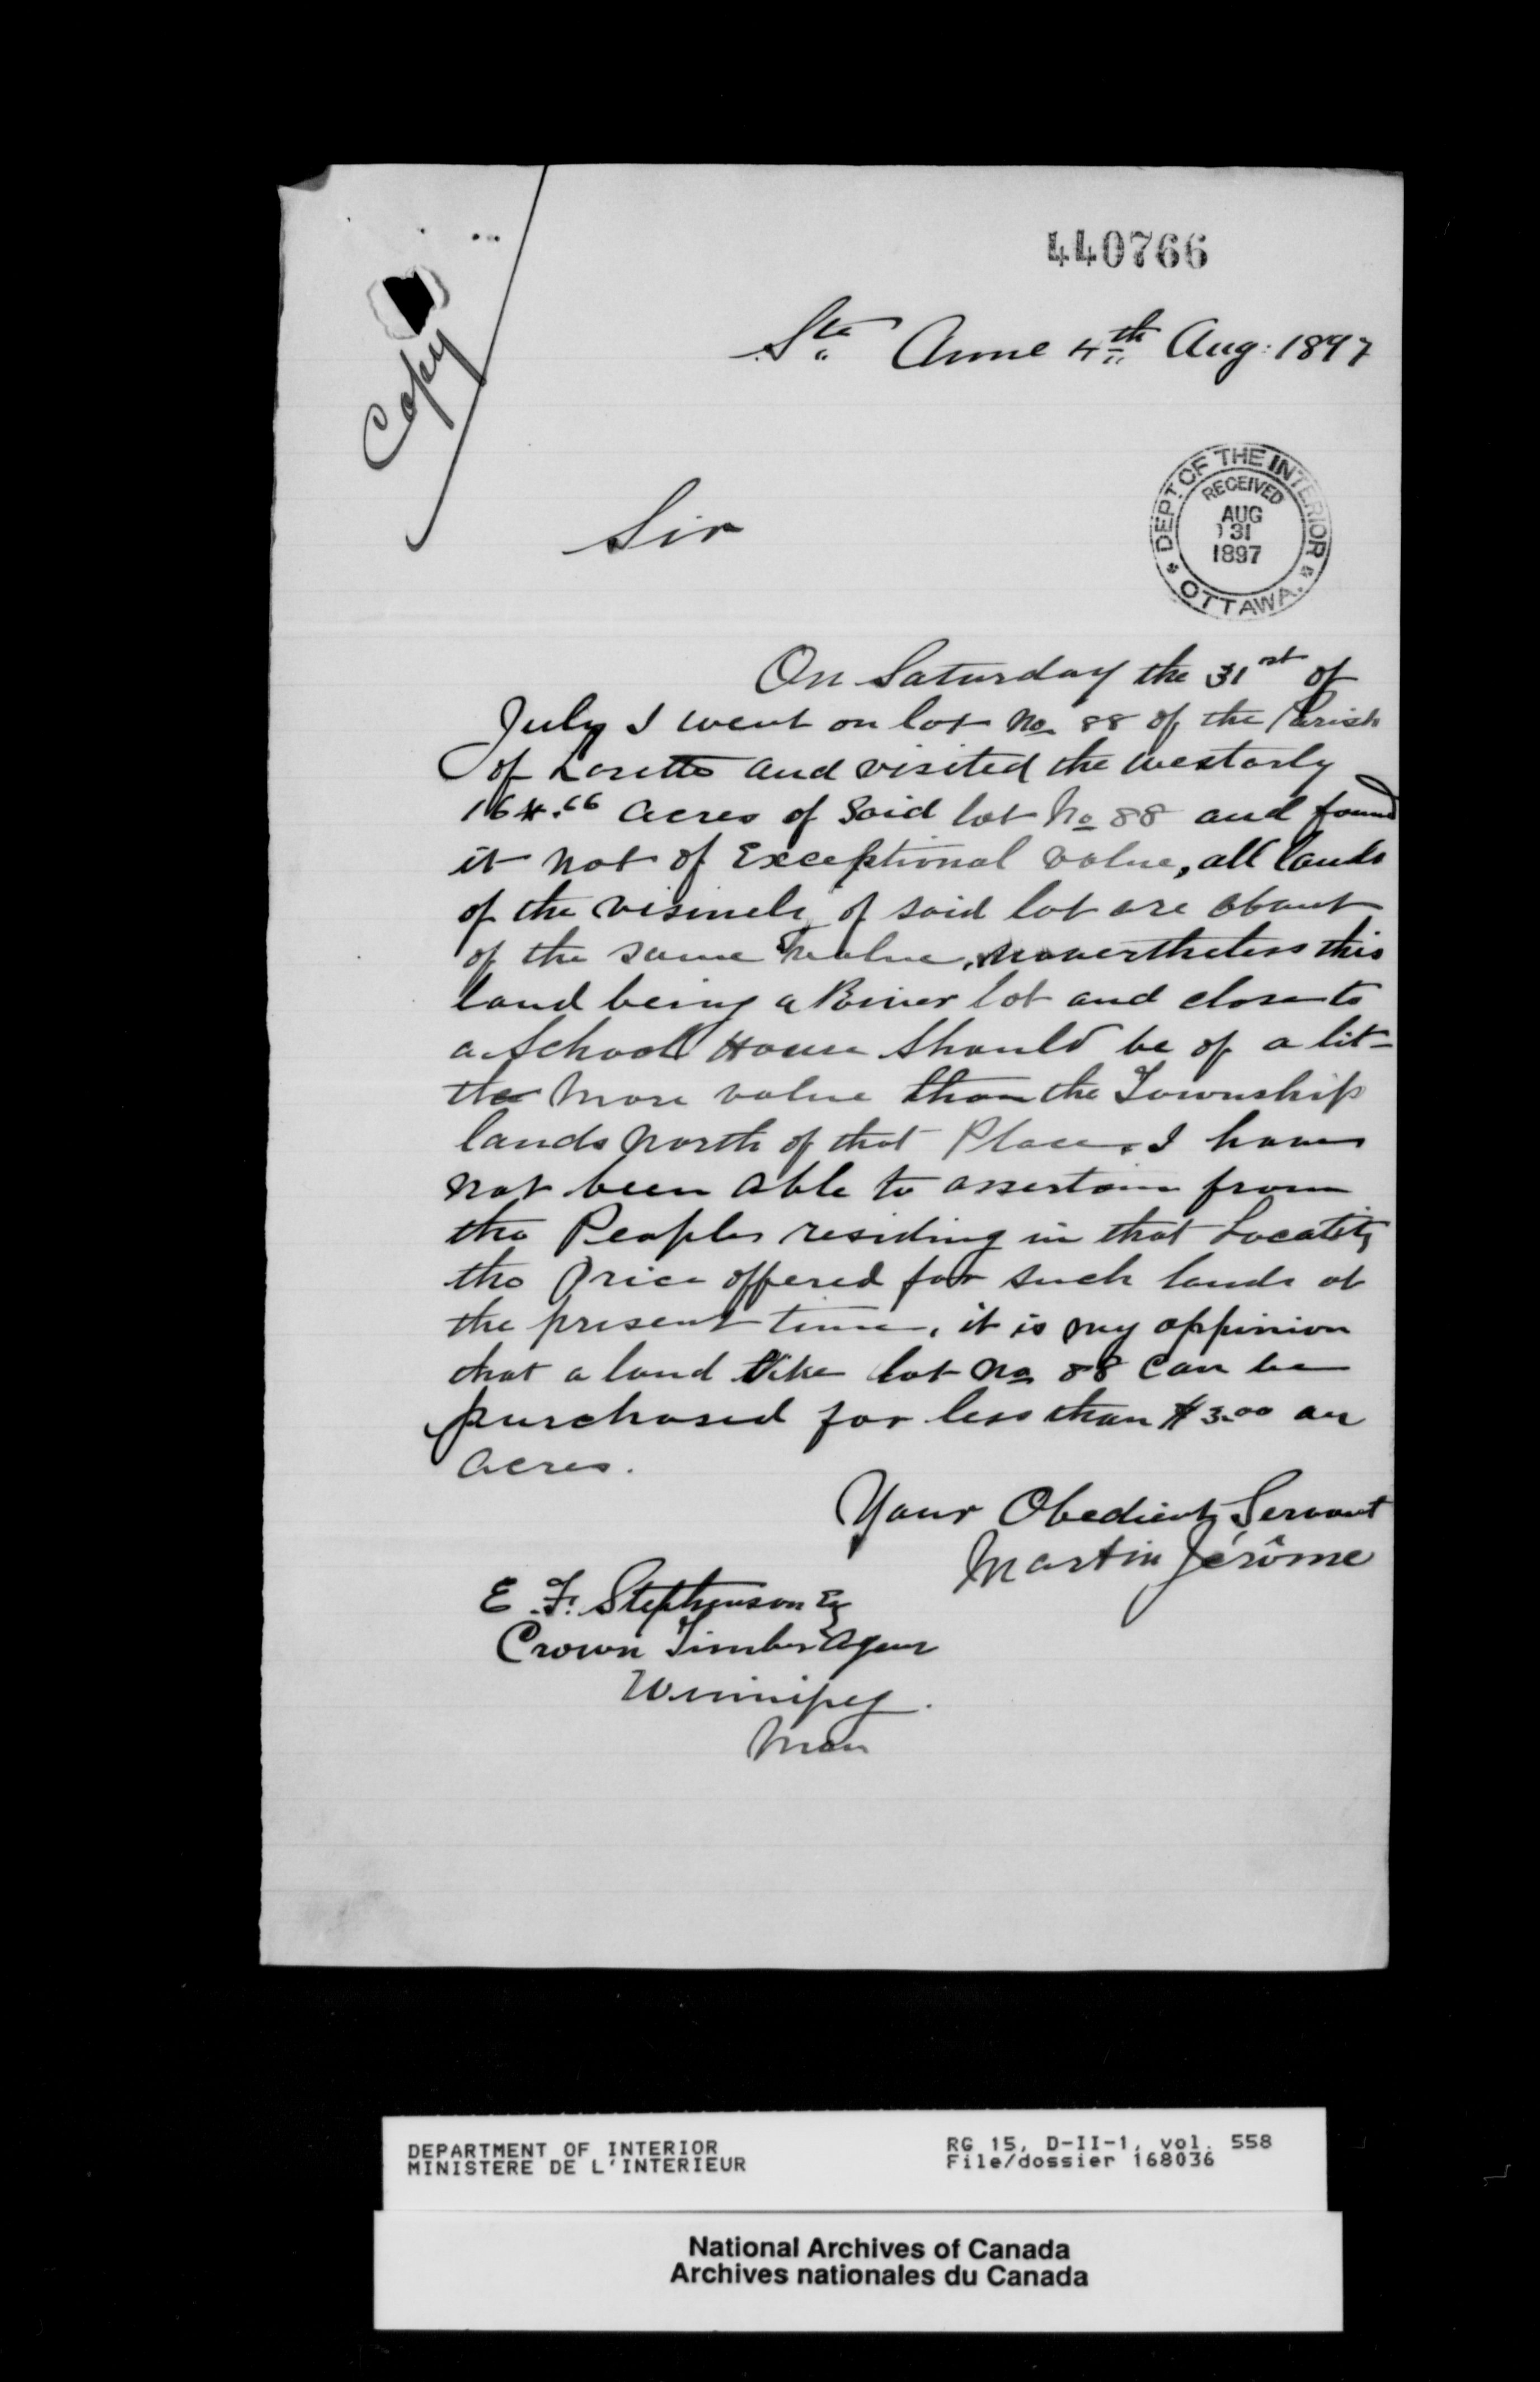 440766
Copy
Ste Anne 4th Aug: 1897
DEPT. OF THE INTERIOR
RECEIVED
AUG
31
1897
OTTAWA.
Sir
On Saturday the 31st of
July I went on lot No 88 of the Parish
of Lorette and visited the westerly
164.66 acres of Said lot No 88 and found
it not of Exceptional value, all lands
of the visinety of said lot are about
of the same value, nevertheless this
land being a River lot and close to
a School House Should be of a lit-
tle More value than the Township
lands North of that Place, I have
Not been able to assertain from
the Peoples residing in that Locality
the Price offered for such lands at
the present time, it is my oppinion
that a land like lot No 88 can be
purchased for less than $3.00 an
acres.
Your Obedient Servant
Martin Jérôme
E. F. Stephenson Eq
Crown Timber Agent
Winnipeg.
Man
DEPARTMENT OF INTERIOR
MINISTERE DE L'INTERIEUR
RG 15, D-II-1, vol. 558
File/dossier 168036
National Archives of Canada
Archives nationales du Canada